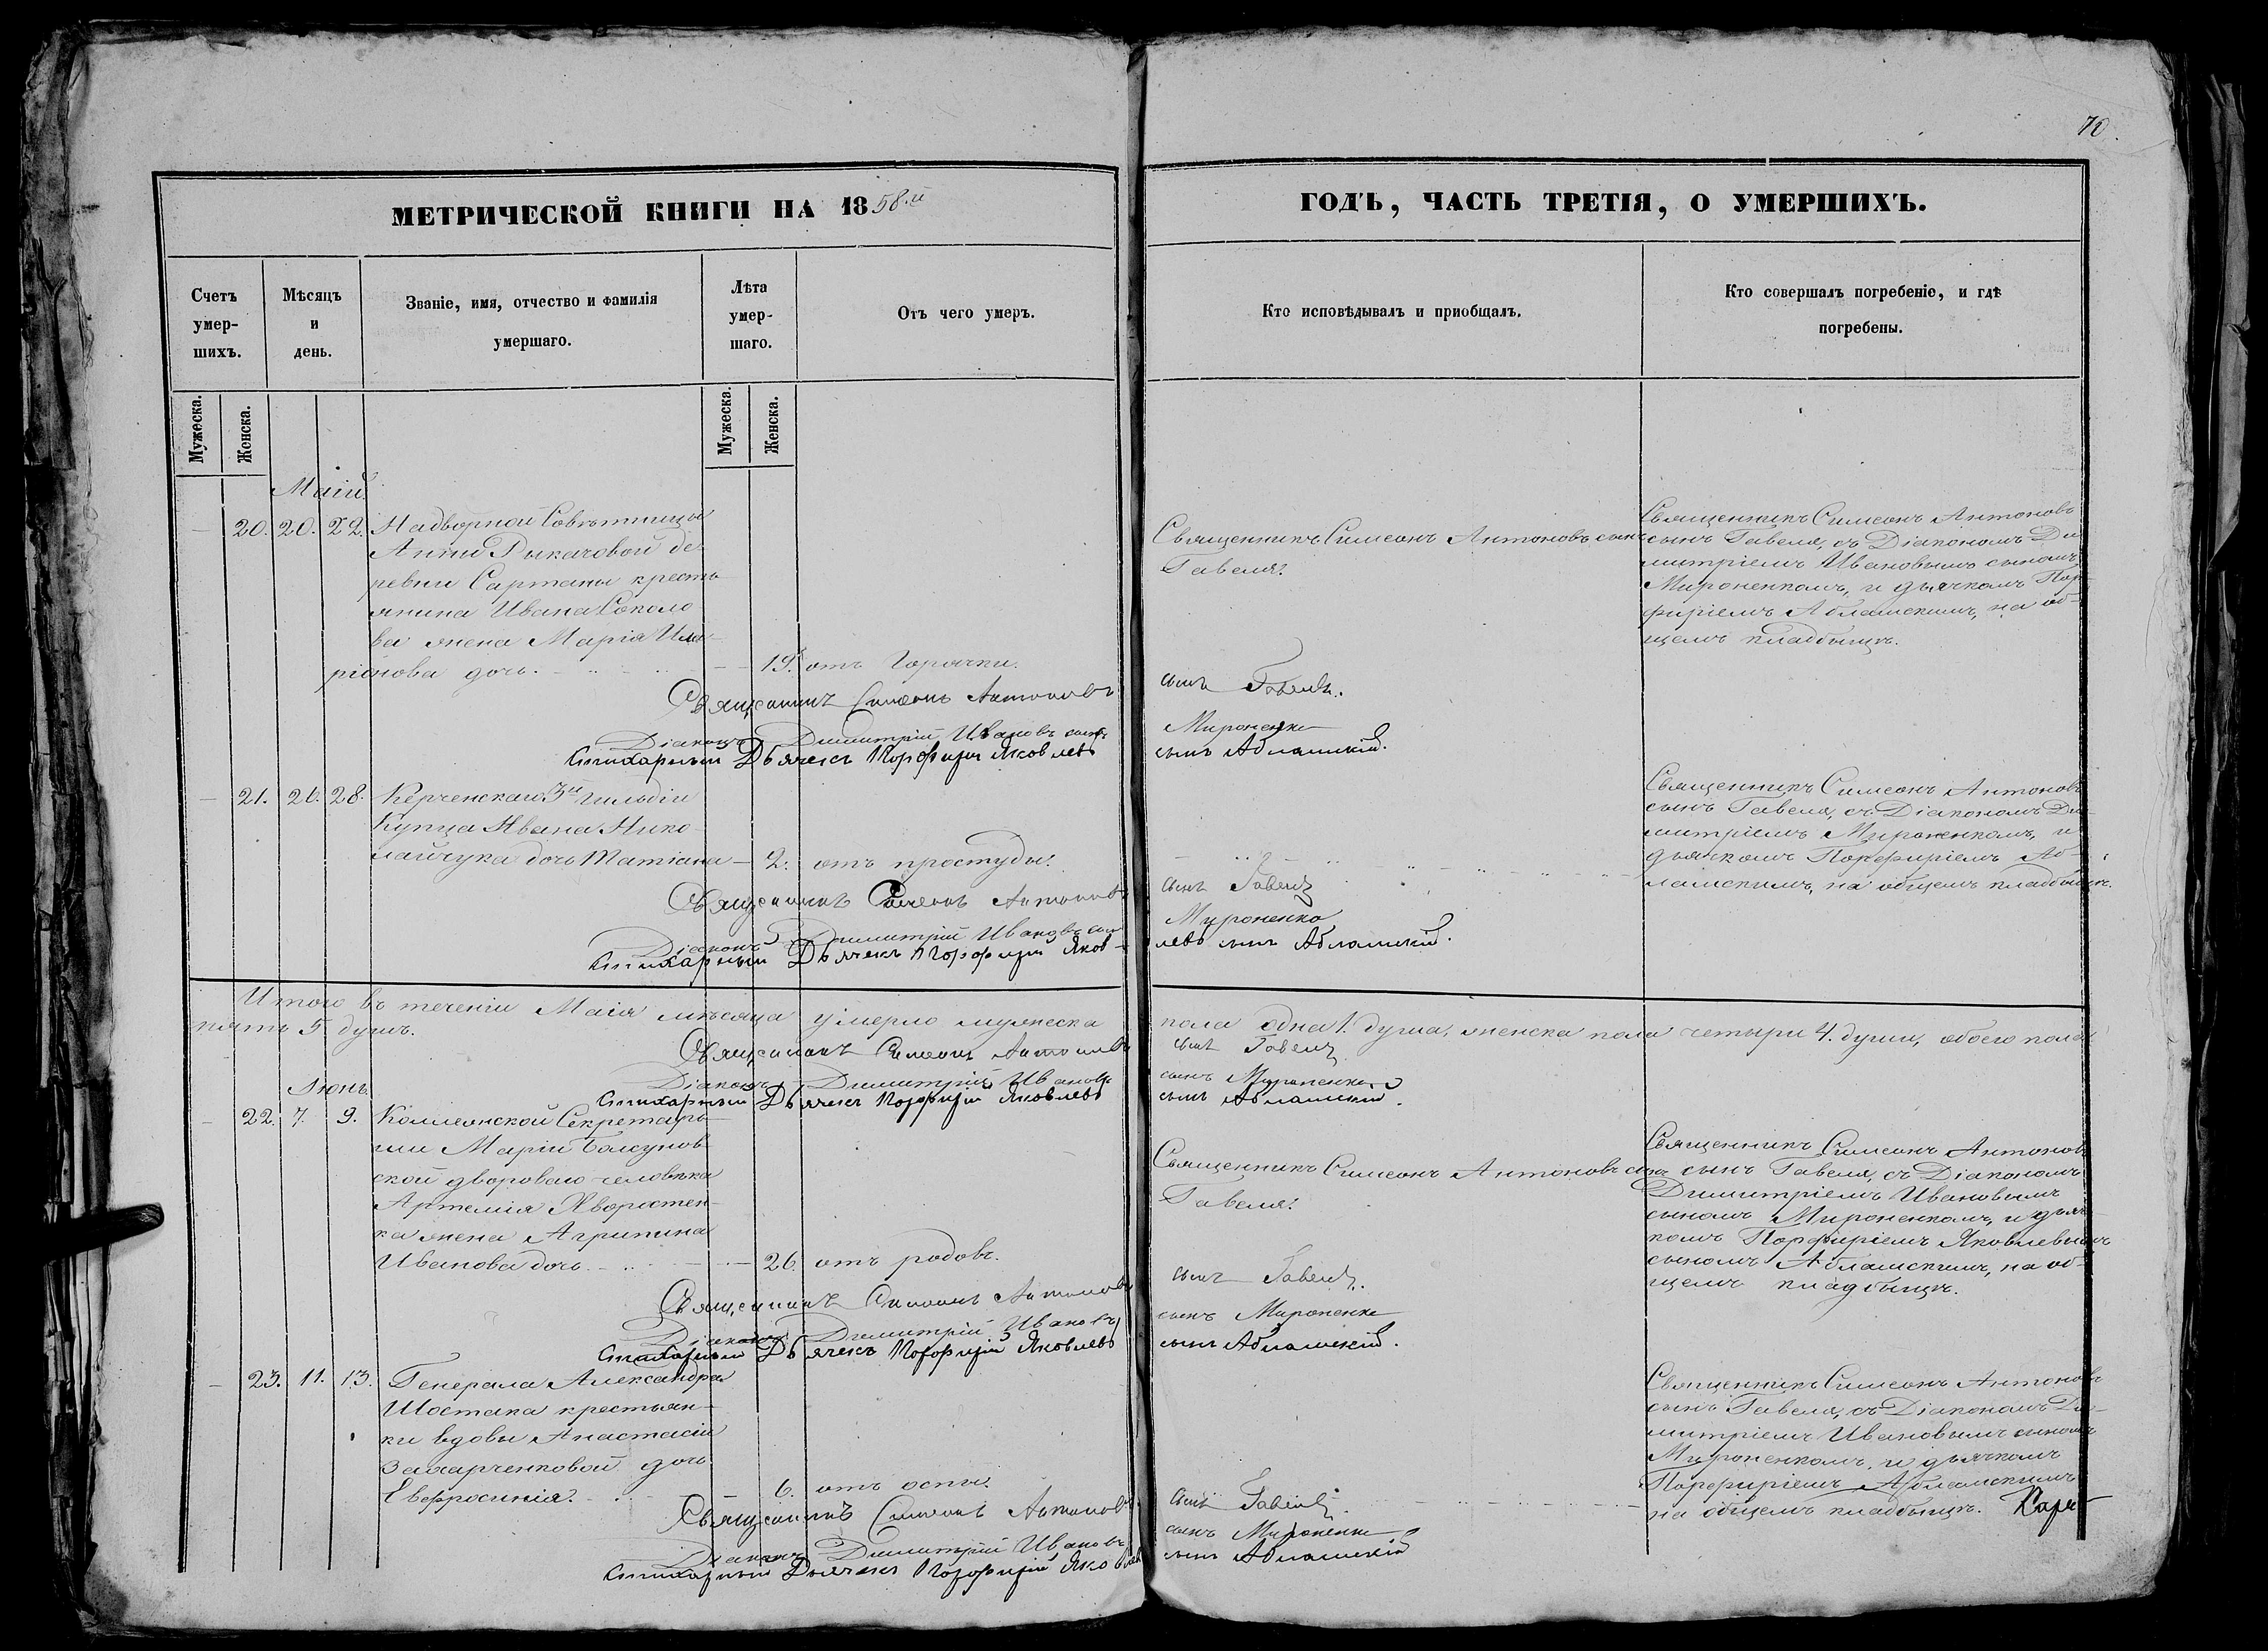 70.
МЕТРИЧЕСКОЙ КНИГИ НА 1858.й
ГОДЪ, ЧАСТЬ ТРЕТІЯ, О УМЕРШИХЪ.
Счетъ
умер-
шихъ.
Мѣсяцъ
и
день.
Званіе, имя, отчество и фамилія
умершаго.
Лѣта
умер-
шаго.
Отъ чего умеръ.
Кто исповѣдывалъ и пріобщалъ.
Кто совершалъ погребеніе, и гдѣ
погребены.
Мужеска.
Женска.
Мужеска.
Женска.
Маій
– 20. 20. 22. Надворной Совѣтницы
Анны Рыкачовой де-
ревни Сартаны кресть-
янина Ивана Соколо-
ва жена Марія Ила-
ріонова дочь. 19. отъ горячки.
Священникъ Симеонъ Антоновъ сынъ
Гавеля.
Священникъ Симеонъ Антоновъ
сынъ Гавеля, съ Діакономъ Ди-
митріемъ Ивановымъ сыномъ
Мироненкомъ, и дьячкомъ Пор-
фиріемъ Абламскимъ, на об-
щемъ кладбищѣ.
Священникъ Симеонъ Антоновъ сынъ Гавеля.
Діаконъ Димитрій Ивановъ сынъ Мироненко
Стихарный Дьячекъ Порфирій Яковлевъ сынъ Абламский.
– 21. 26. 28. Керченскаго 3й гильдіи
Купца Ивана Нико-
лайчука дочь Татіана – 2. отъ простуды.
Священникъ Симеонъ Антоновъ
сынъ Гавеля, съ Діакономъ Ди-
митріемъ Мироненкомъ, и
дьячкомъ Порфиріемъ Аб-
ламскимъ, на общемъ кладбищѣ.
Священникъ Симеонъ Антоновъ сынъ Гавеля
Діаконъ Димитрій Ивановъ сын Мироненко
Стихарный Дьячекъ Порфирій Яков-левъ сынъ Абламский.
Итого въ теченіи Маія мѣсяца умерло мужеска пола одна 1. душа, женска пола четыри 4. души, обоего пола
пять 5. душъ.
Священникъ Симеонъ Антоновъ сынъ Гавеля
Діаконъ Димитрій Ивановъ сынъ Мироненко
Стихарный Дьячекъ Порфирій Яковлевъ сынъ Абламский.
Іюнь
– 22. 7. 9. Коллежской Секретар-
ши Маріи
ской двороваго человѣка
Артемія Хворостен-
ка жена Агрипина
Иванова дочь. 26. отъ родовъ.
Священникъ Симеонъ Антоновъ сынъ
Гавеля.
Священникъ Симеонъ Антоновъ
сынъ Гавеля, съ Діакономъ
Димитріемъ Ивановымъ
сыномъ Мироненкомъ, и дьяч-
комъ Порфиріемъ Яковлевымъ
сыномъ Абламскимъ, на об-
щемъ кладбищѣ.
Священникъ Симеонъ Антоновъ сынъ Гавеля.
Діаконъ Димитрій Ивановъ сынъ Мироненко
Стихарный Дьячекъ Порфирій Яковлевъ сынъ Абламский.
– 23. 11. 13. Генерала Александра
Шостака крестьян-
ки вдовы Анастасіи
Захарченковой дочь
Евфросинія. 6. отъ оспы.
Священникъ Симеонъ Антоновъ
сынъ Гавеля, съ Діакономъ Ди-
митріемъ Ивановымъ сыномъ
Мироненкомъ, и дьячкомъ
Порфиріемъ Абламскимъ
на общемъ кладбищѣ.
Священникъ Симеонъ Антоновъ сынъ Гавеля
Діаконъ Димитрій Ивановъ сынъ Мироненко
Стихарный Дьячекъ Порфирій Яковлев сынъ Абламский